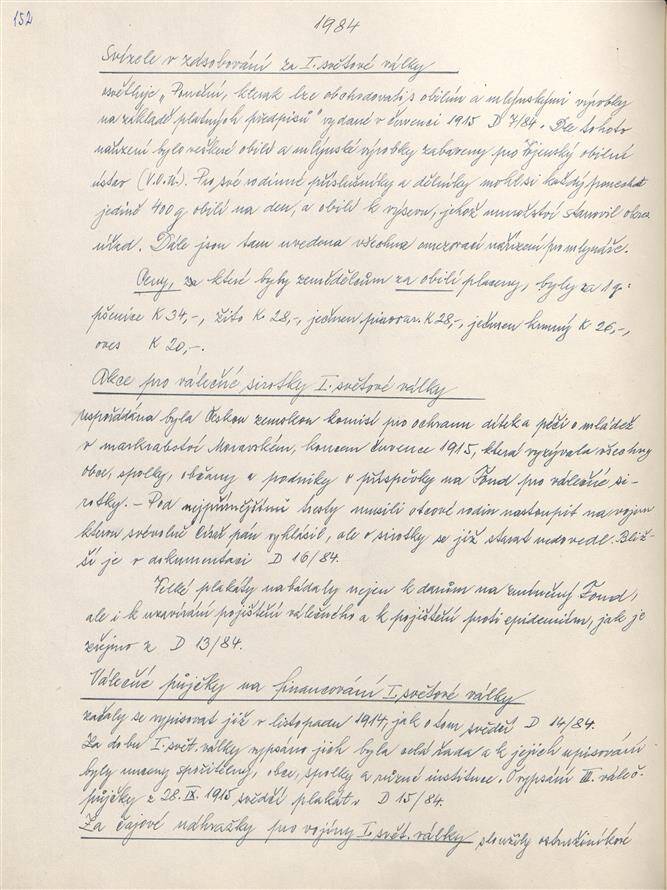 152
1984
Svízele v zásobování za I. světové války
osvětluje „Poučení, kterak lze obchodovati s obilím a mlýnskými výrobky
na základě platných předpisů" vydané v červenci 1915 D 7/84. Dle tohoto
nařízení bylo veškeré obilí a mlýnské výrobky zabaveny pro Vojenský obilní
ústav (V.O.Ú.). Pro své rodinné příslušníky a dělníky mohl si každý ponechat
jedině 400 g obilí na den, a obilí k výsevu, jehož množství stanovil okres.
úřad. Dále jsou tam uvedena všechna omezovací nařízení pro mlynáře.
Ceny, za které byly zemědělcům za obilí placeny, byly za 1 q:
pšenice K 34,-, žito K 28,-, ječmen pivovar. K 28,-, ječmen krmný K 26,-,
oves K 20,-.
Akce pro válečné sirotky I. světové války
uspořádána byla Českou zemskou komisí pro ochranu dítek a péči o mládež
v markrabství Moravském, koncem července 1915, která vyzývala všechny
obce, spolky, občany a podniky o příspěvky na Fond pro válečné si-
rotky. - Pod nejpřísnějšími tresty musili otcové rodin nastoupit na vojnu
kterou svévolně císař pán vyhlásil, ale o sirotky se již starat nedovedl. Bliž-
ší je v dokumentaci D 16/84.
Velké plakáty nabádaly nejen k darům na zmíněný Fond,
ale i k uzavírání pojištění válečného a k pojištění proti epidemiím, jak je
zřejmo z D 13/84.
Válečné půjčky na financování I. světové války
začaly se vypisovat již v listopadu 1914, jak o tom svědčí D 14/84.
Za dobu I. svět. války vypsáno jich byla celá řada a k jejich upisování
byly nuceny spořitelny, obce, spolky a různé instituce. O vypsání III. váleč.
půjčky z 28. IX. 1915 svědčí plakát v D 15/84.
Za čajové náhražky pro vojíny I. svět. války sloužily ostružiníkové